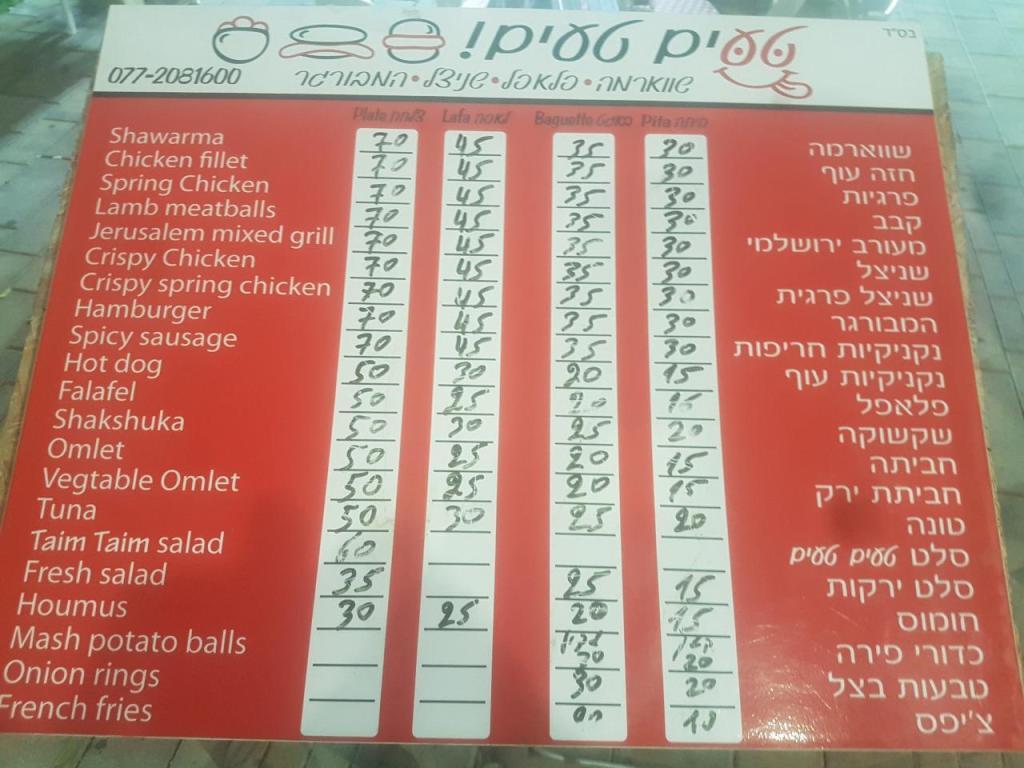 בס"ד
טעים טעים!
שווארמה • פלאפל • שניצל • המבורגר
077-2081600
Plate צלחת Lafa לאפה Baguette באגט Pita פיתה
Shawarma 70 45 35 30 שווארמה
Chicken fillet 70 45 35 30 חזה עוף
Spring Chicken 70 45 35 30 פרגיות
Lamb meatballs 70 45 35 30 קבב
Jerusalem mixed grill 70 45 35 30 מעורב ירושלמי
Crispy Chicken 70 45 35 30 שניצל
Crispy spring chicken 70 45 35 30 שניצל פרגית
Hamburger 70 45 35 30 המבורגר
Spicy sausage 70 45 35 30 נקניקיות חריפות
Hot dog 50 30 20 15 נקניקיות עוף
Falafel 50 25 20 15 פלאפל
Shakshuka 50 30 25 20 שקשוקה
Omlet 50 25 20 15 חביתה
Vegtable Omlet 50 25 20 15 חביתת ירק
Tuna 50 30 25 20 טונה
Taim Taim salad 60 סלט טעים טעים
Fresh salad 35 25 15 סלט ירקות
Houmus 30 25 20 15 חומוס
Mash potato balls 20 כדורי פירה
Onion rings 30 20 טבעות בצל
French fries 10 צ'יפס